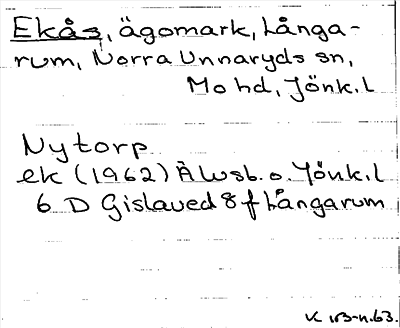 Ekås, ägomark, Långa-
rum, Norra Unnaryds sn,
Mo hd, Jönk.l
Nytorp
ek (1962) Älvsb. o. Jönk.l
6 D Gislaved 8 f Långarum